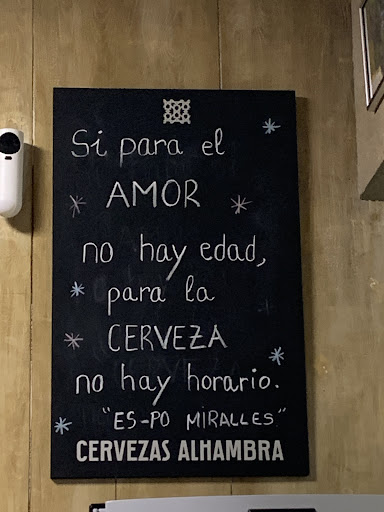 Si para el
AMOR
no hay edad,
para la
CERVEZA
no hay horario.
"ES-PO MIRALLES"
CERVEZAS ALHAMBRA